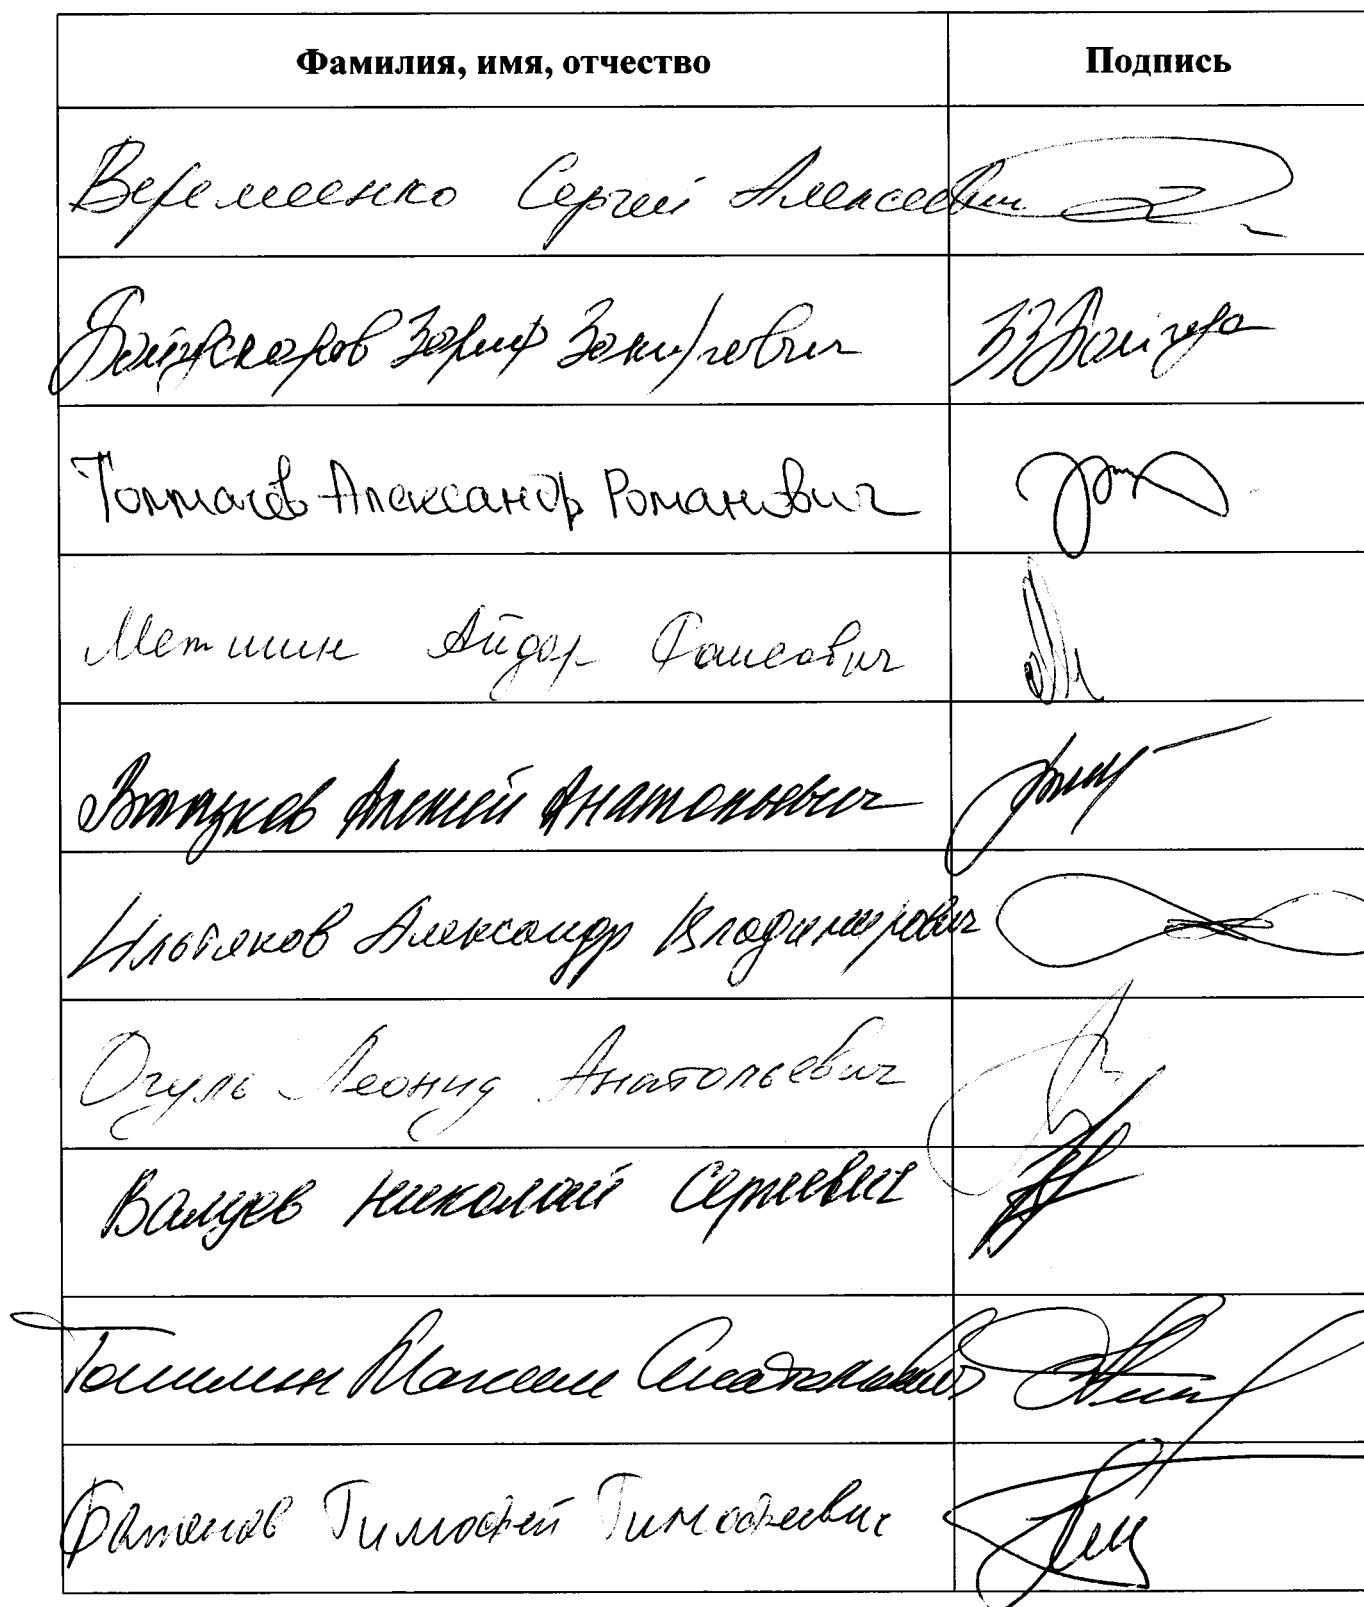 Фамилия, имя, отчество Подпись
Веремеенко Сергей Алексеевич
Байгускаров Зариф Закирович
Толмачев Александр Романович
Метшин Айдар Раисович
Алексей Анатольевич
Ильтяков Александр Владимирович
Огуль Леонид Анатольевич
Валуев Николай Сергеевич
Топилин Максим Анатольевич
Баженов Тимофей Тимофеевич